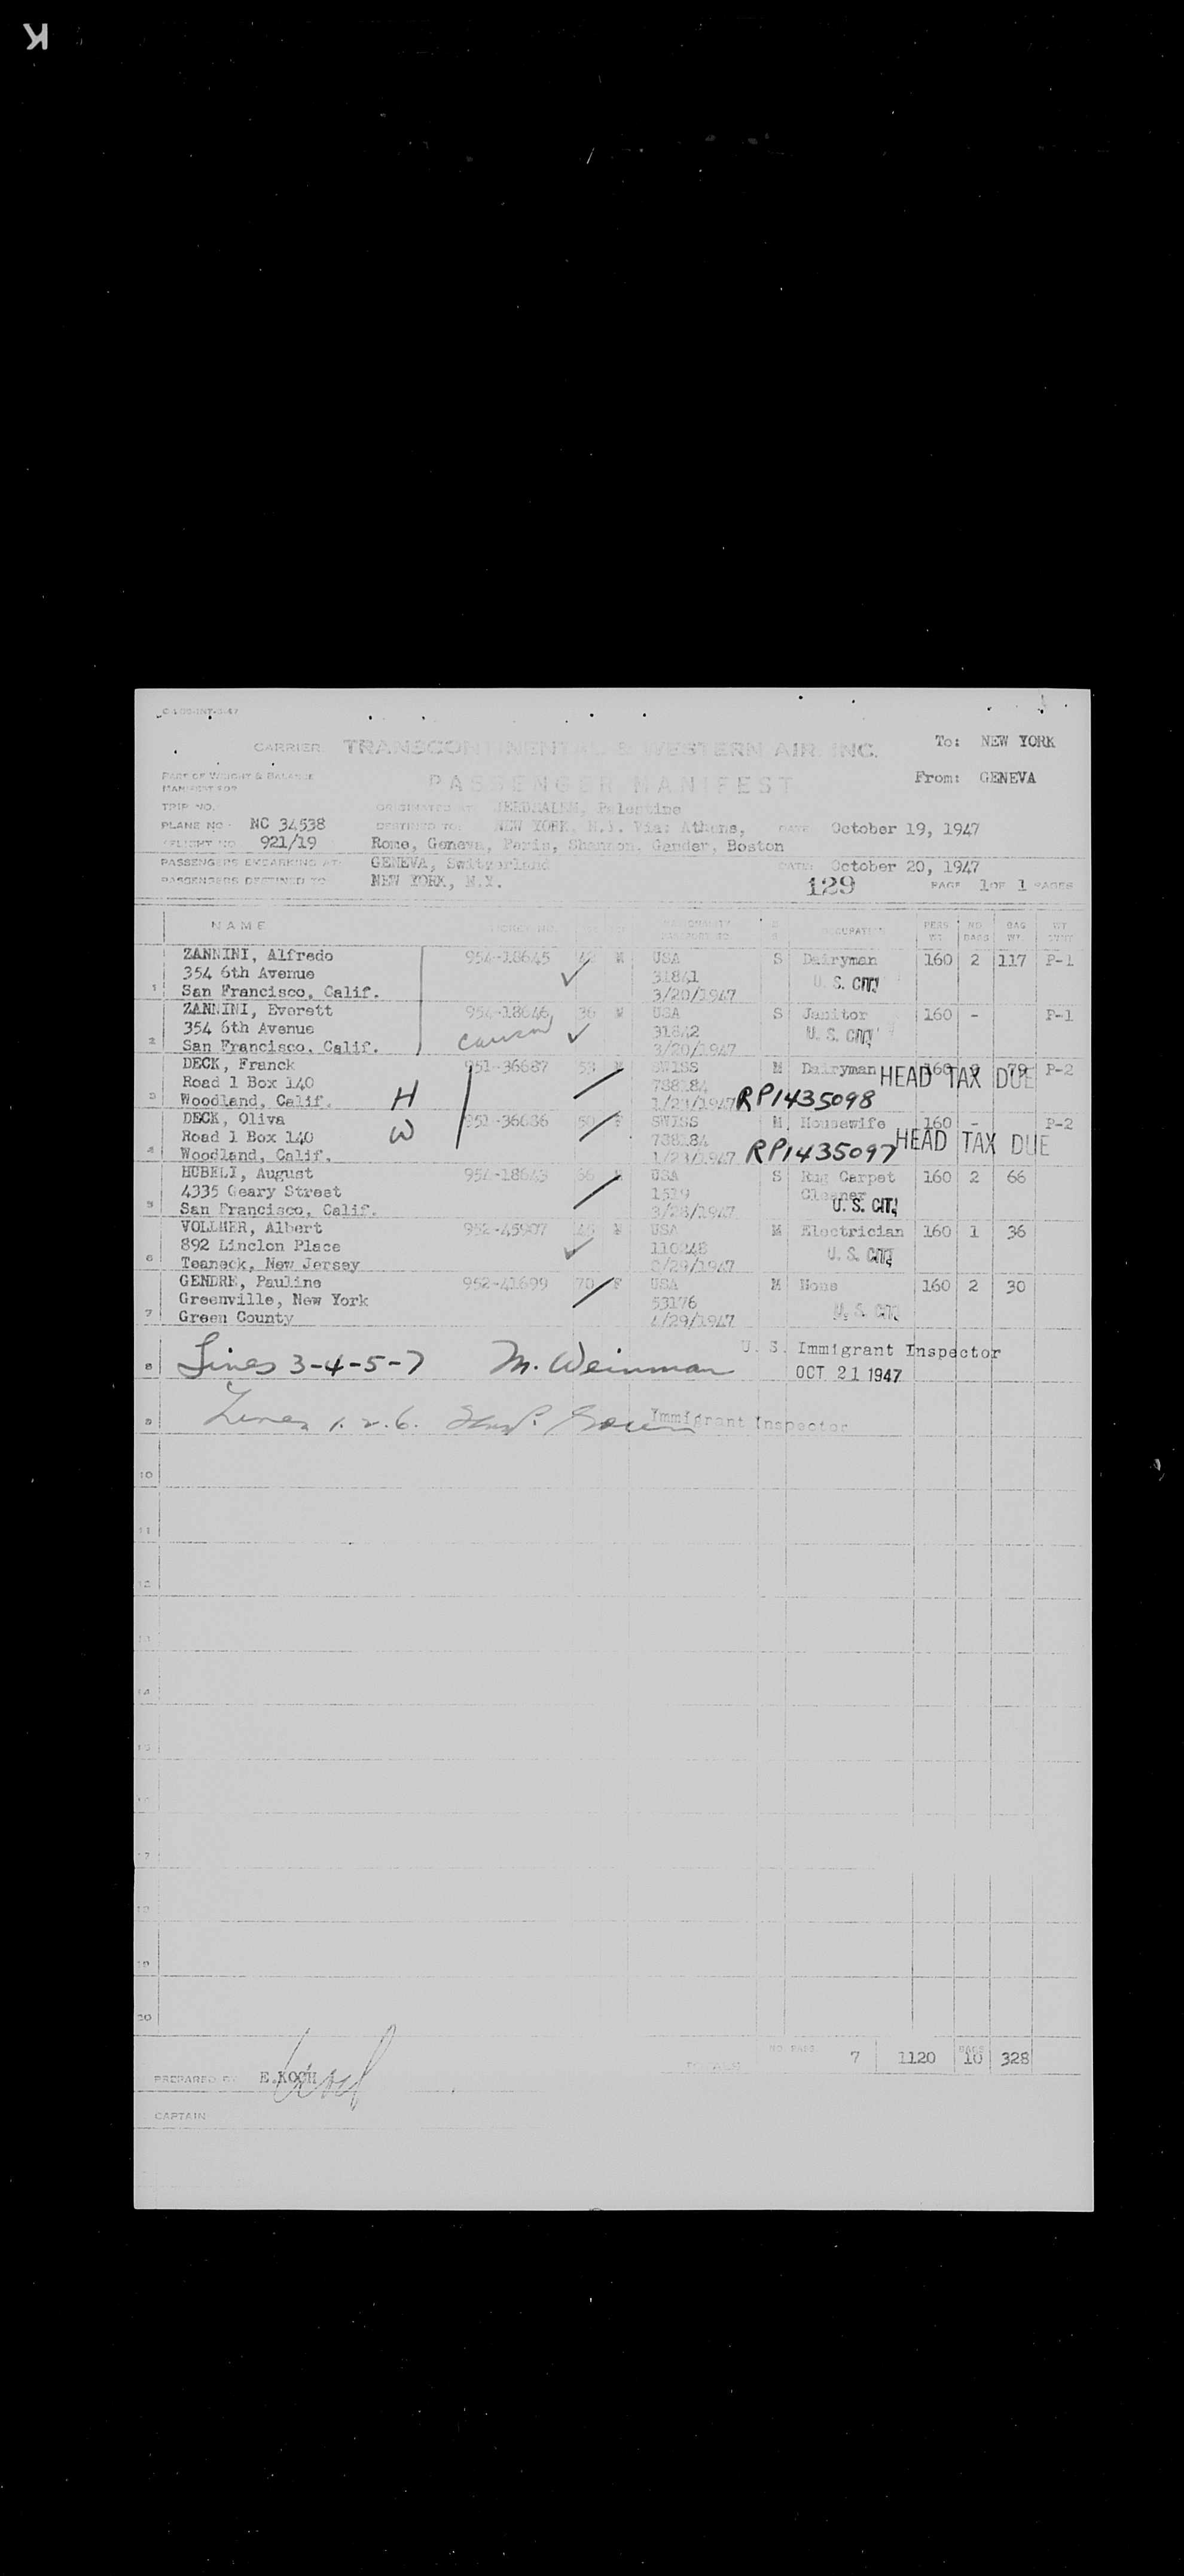 K
C-100-INT-3-47
CARRIER TRANSCONTINENTAL & WESTERN AIR, INC. To: NEW YORK
PART OF WEIGHT & BALANCE MANIFEST FOR PASSENGER MANIFEST From: GENEVA
TRIP NO. ORIGINATED AT: JERUSALEM, Palestine
PLANE NO. NC 34538 DESTINED TO: NEW YORK, N.Y. Via: Athens, DATE October 19, 1947
FLIGHT NO 921/19 Rome, Geneva, Paris, Shannon, Gander, Boston
PASSENGERS EMBARKING AT: GENEVA, Switzerland DATE: October 20, 1947
PASSENGERS DESTINED TO NEW YORK, N.Y. 129 PAGE 1 OF 1 PAGES
NAME TICKET NO. OCCUPATION PERS. WT. NO. BAGS BAG WT.
ZANNINI, Alfredo 954-18645 42 M USA S Dairyman 160 2 117 P-1
354 6th Avenue 31841 U. S. CIT.
1 San Francisco, Calif. 3/20/1947
ZANNINI, Everett 954-18646 36 M USA S Janitor 160 - P-1
354 6th Avenue 31842 U. S. CIT.
2 San Francisco, Calif. 3/20/1947
DECK, Franck 951-36687 SWISS M Dairyman 160 79 P-2
HEAD TAX DUE
Road 1 Box 140 738184
3 Woodland, Calif. H 1/23/1947 RP1435098
DECK, Oliva 951-36686 50 F SWISS M Housewife 160 - P-2
Road 1 Box 140 W 738184 HEAD TAX DUE
4 Woodland, Calif. 1/23/1947 RP1435097
HUBELI, August 954-18643 M USA S Rug Carpet 160 2 66
4335 Geary Street 1519 Cleaner
5 San Francisco, Calif. 3/28/1947 U. S. CIT.
VOLLMER, Albert 952-45907 M USA M Electrician 160 1 36
892 Linclon Place 110248 U. S. CIT.
6 Teaneck, New Jersey /29/1947
GENDRE, Pauline 952-41699 70 F USA M None 160 2 30
Greenville, New York 53176
7 Green County 4/29/1947 U. S. CIT.
8 Lines 3-4-5-7 M. Weinman U. S. Immigrant Inspector
OCT 21 1947
9 Lines 1. 2. 6. Immigrant Inspector
10
11
12
13
14
15
16
17
18
19
20
TOTALS NO. PASS. 7 1120 BAGS 10 328
PREPARED BY E.KOCH
CAPTAIN